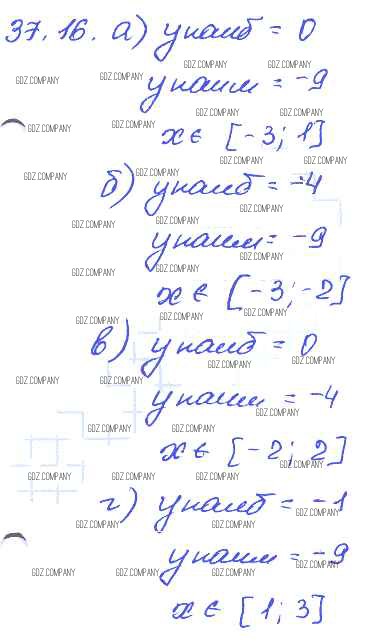 37.16. а) y наиб = 0
GDZ.COMPANY GDZ.COMPANY
GDZ.COMPANY GDZ.COMPANY
y наим = -9
GDZ.COMPANY GDZ.COMPANY
GDZ.COMPANY GDZ.COMPANY
x ∈ [-3; 1]
GDZ.COMPANY GDZ.COMPANY
GDZ.COMPANY GDZ.COMPANY
б) y наиб = -4
GDZ.COMPANY
GDZ.COMPANY GDZ.COMPANY
y наим = -9
GDZ.COMPANY
GDZ.COMPANY GDZ.COMPANY
x ∈ [-3; -2]
GDZ.COMPANY GDZ.COMPANY GDZ.COMPANY
в) y наиб = 0
GDZ.COMPANY GDZ.COMPANY
GDZ.COMPANY GDZ.COMPANY
y наим = -4
GDZ.COMPANY
GDZ.COMPANY GDZ.COMPANY
x ∈ [-2; 2]
GDZ.COMPANY
GDZ.COMPANY GDZ.COMPANY GDZ.COMPANY
г) y наиб = -1
GDZ.COMPANY
GDZ.COMPANY GDZ.COMPANY
y наим = -9
GDZ.COMPANY
GDZ.COMPANY GDZ.COMPANY GDZ.COMPANY
x ∈ [1; 3]